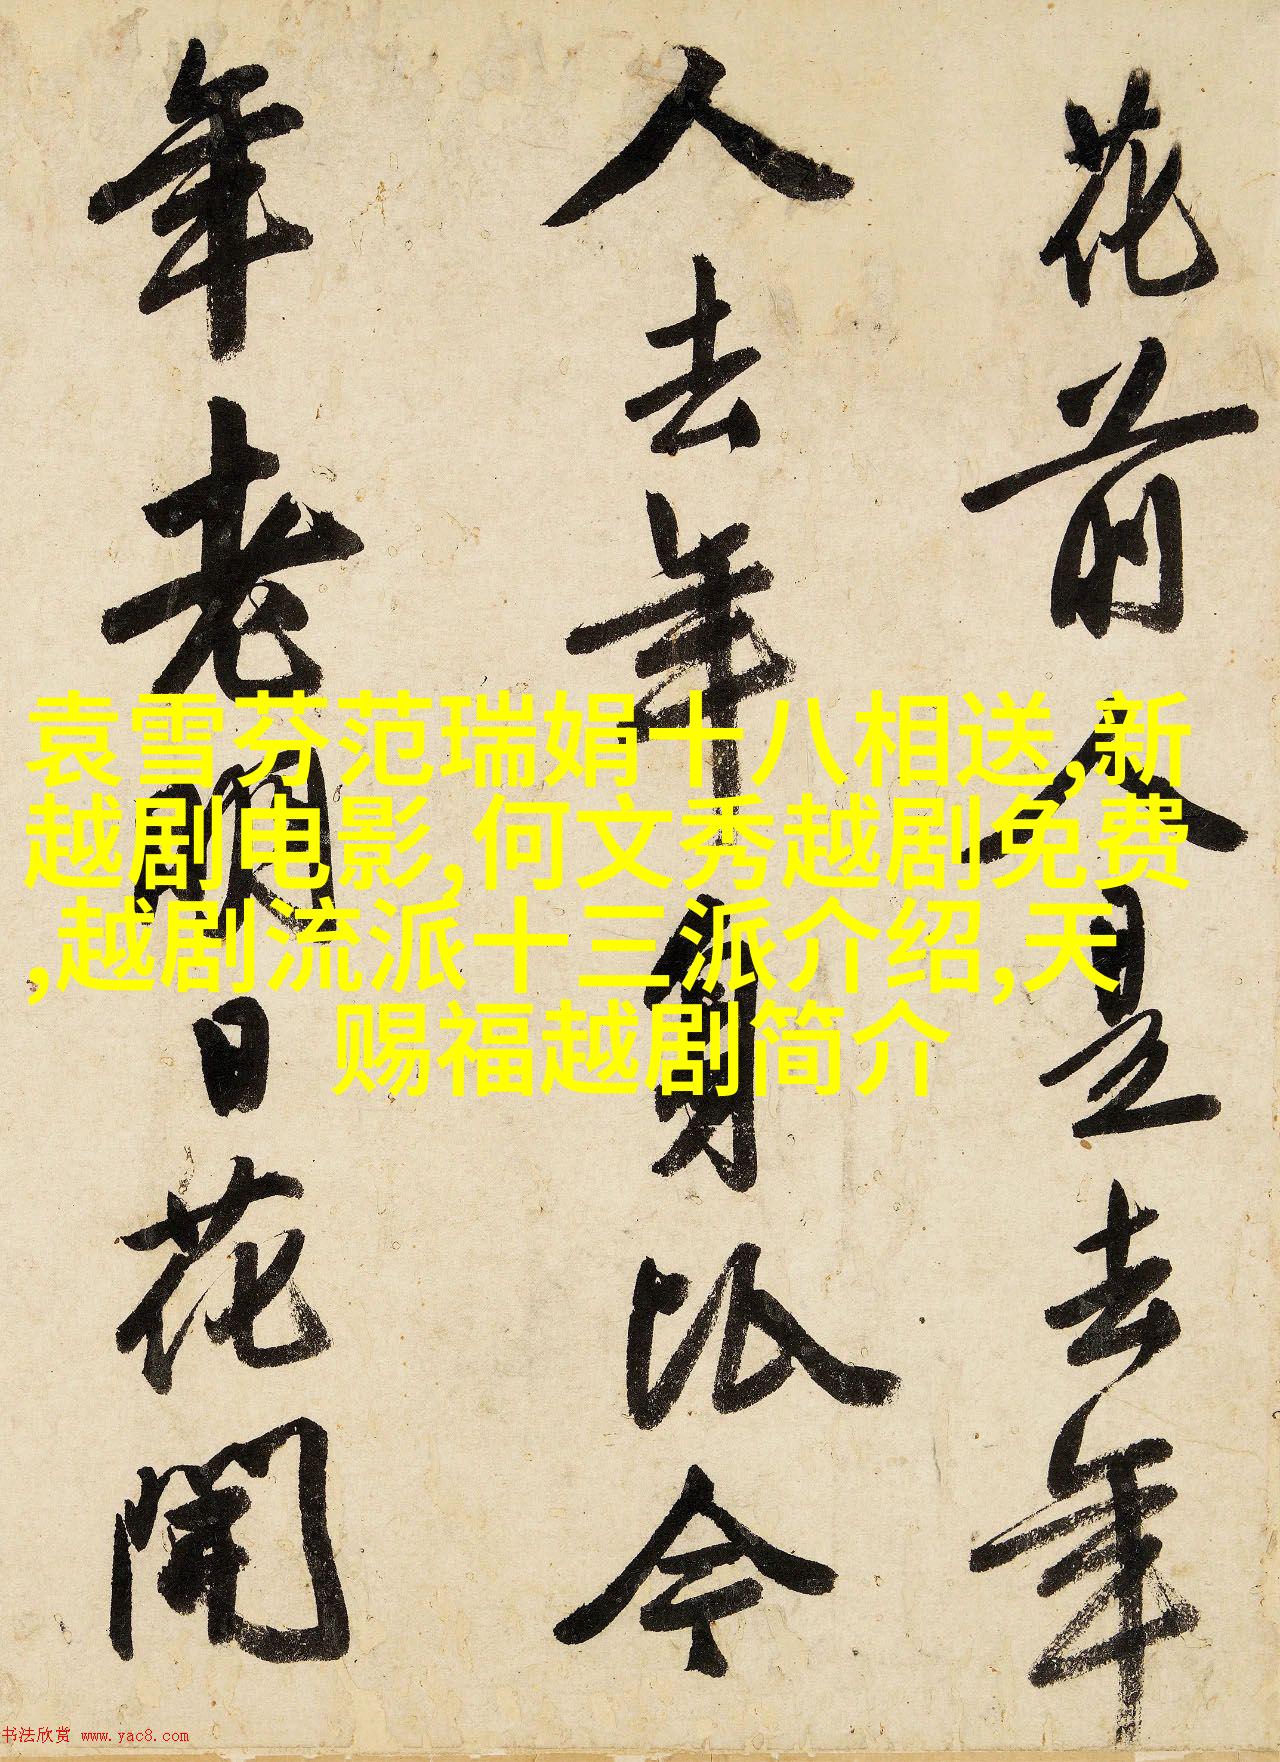 花前人是去年
人去年身比今
年老明日花開
袁雪芬范瑞娟十八相送,新
越剧电影,何文秀越剧免费
,越剧流派十三派介绍,天
赐福越剧简介
书法欣赏 www.yac8.com